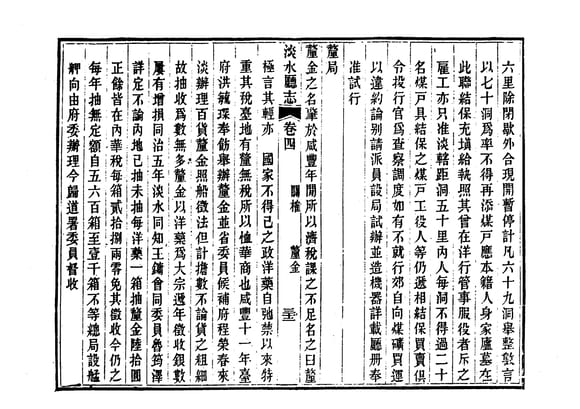 六里除閉歇外合現開暫停計凡六十九洞舉整數言
以七十洞爲率不得再添煤戸應本籍人身家廬墓在
此聯結保充塡給執照其曾在洋行管事服役者斥之
雇工亦只准淡轄距洞五十里內人每洞不得過二十
名煤戸具結保之煤戸工役人等仍遞相結保買賣俱
令投行官爲查察調度如有不就行郊自向煤礦買運
以違約論別請派員設局試辦並造機器詳載廳册奉
准試行
釐局
釐金之名肇於咸豐年閒所以濟稅課之不足名之曰釐
淡水廳志 卷四 關榷 釐金
極言其輕亦 國家不得已之政洋藥自弛禁以來特
重其稅臺地有釐無稅所以恤華商也咸豐十一年臺
府洪毓琛奉飭舉辦釐金並省委員候補府程榮春來
淡辦理百貨釐金照船徵法但計擔數不論貨之粗細
故抽收爲數無多釐金以洋藥爲大宗遞年徵收銀數
屢有增損同治五年淡水同知王鏞會同委員魯筠澤
詳定不論內地已抽未抽每洋藥一箱抽釐金陸拾圓
正餘皆在內華稅每箱貳拾捌兩零免其徵收今仍之
每年抽無定額自五六百箱至壹千箱不等總局設艋
舺向由府委辦理今歸道署委員督收